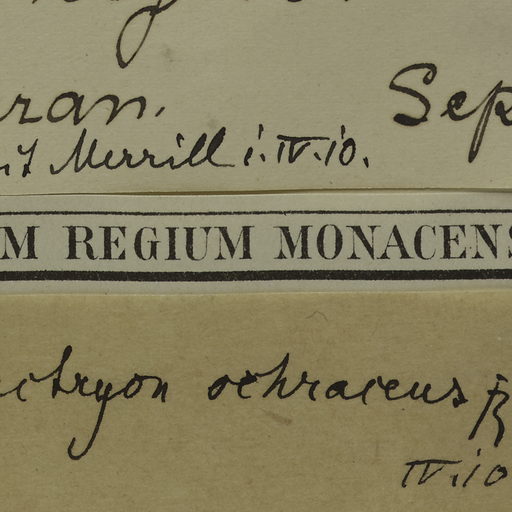 ran. Sep
it Merrill i.IV.io.
M REGIUM MONACENS
ctryon ochraceus
IV.io